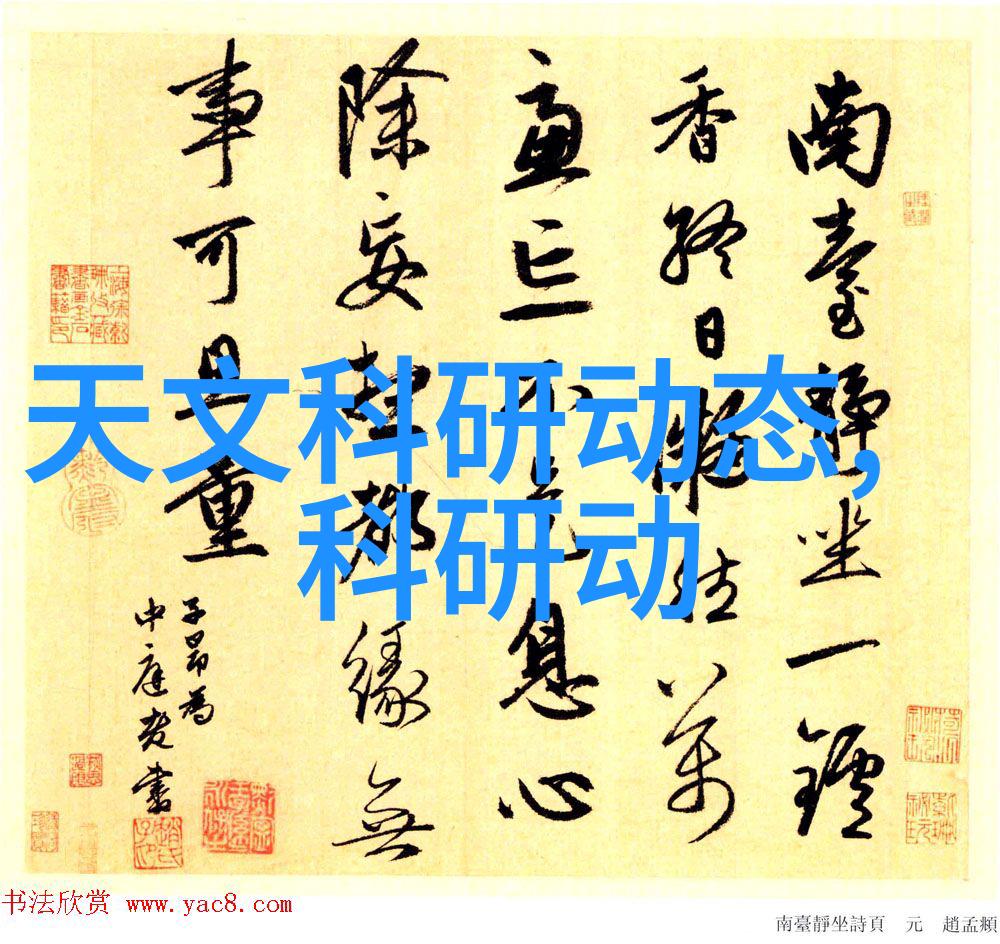 天文科研动态,
科研动
南臺靜坐一鑪
香終日凝 萬
慮亡不 息心
除妄想都緣無
事可 量
子昂為
中庭老書
书法欣赏 www.yac8.com
南臺靜坐詩頁 元 趙孟頫